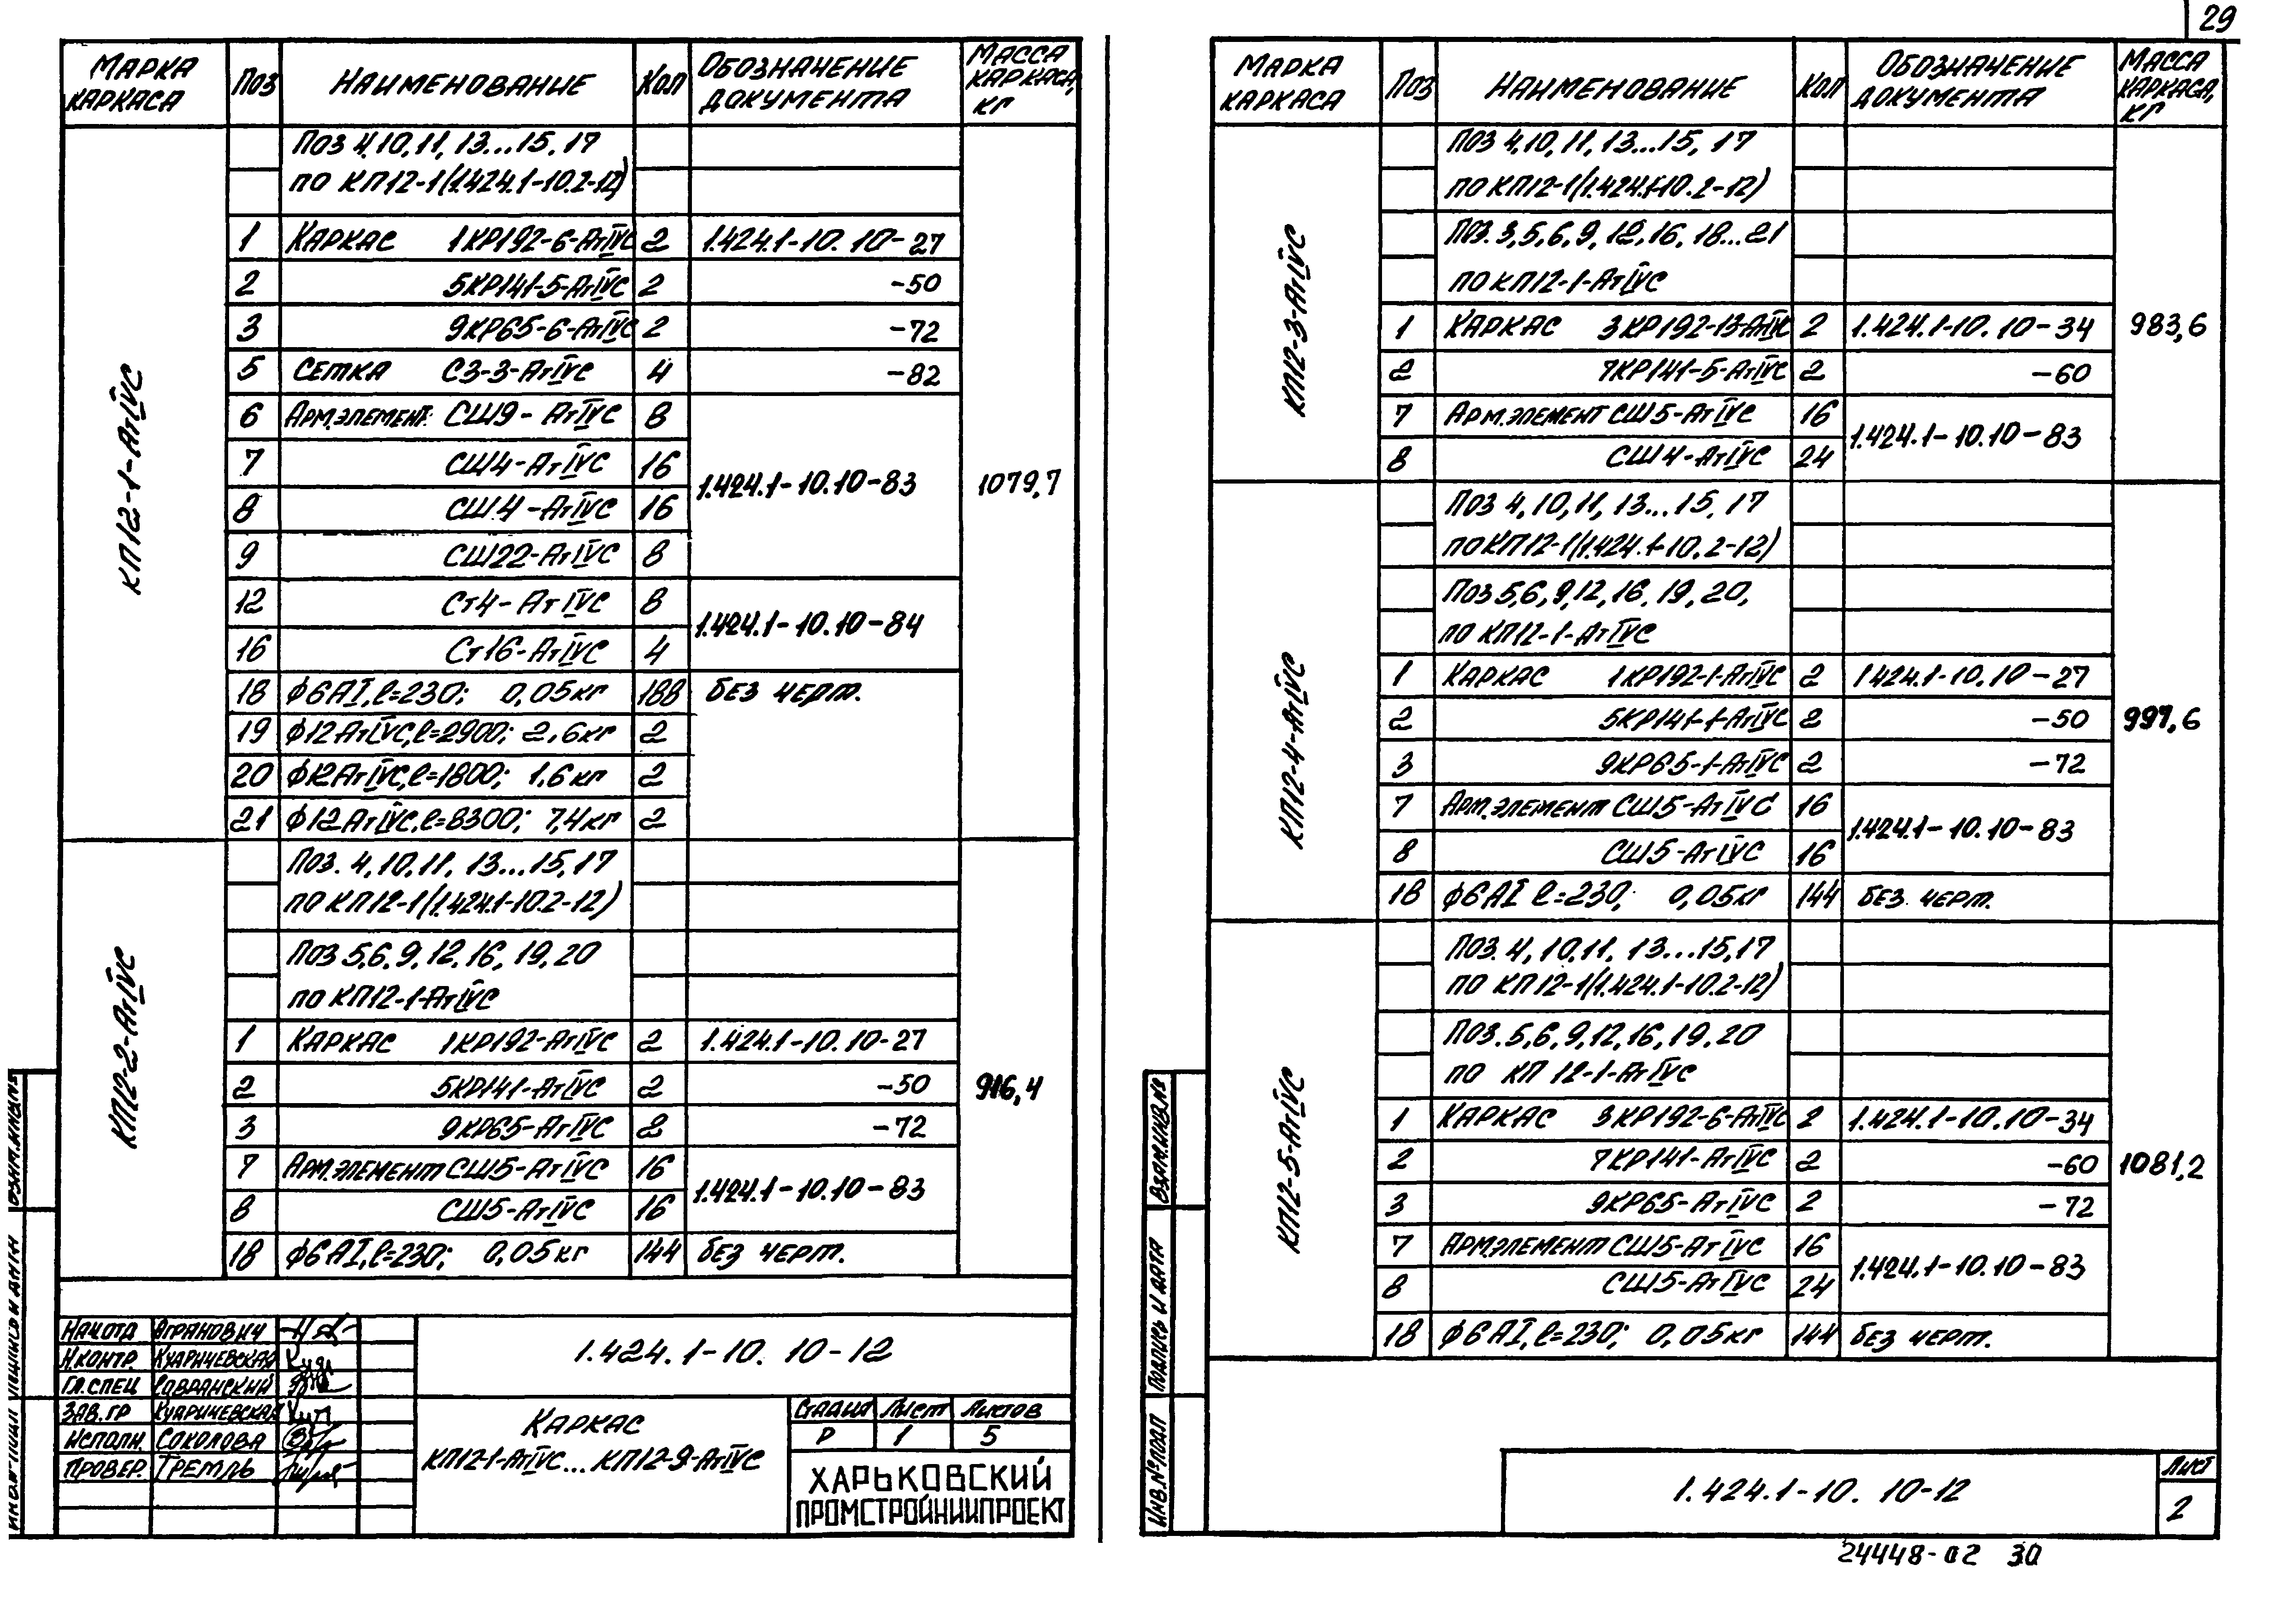 29
МАРКА КАРКАСА ПОЗ НАИМЕНОВАНИЕ КОЛ ОБОЗНАЧЕНИЕ ДОКУМЕНТА МАССА КАРКАСА, КГ
КП12-1-АтIVС
ПОЗ 4,10,11,13...15,17
ПО КП12-1(1.424.1-10.2-12)
1 КАРКАС 1КР192-6-АтIVС 2 1.424.1-10.10-27
2 5КР141-5-АтIVС 2 -50
3 9КР65-6-АтIVС 2 -72
5 СЕТКА С3-3-АтIVС 4 -82
6 АРМ.ЭЛЕМЕНТ СШ9-АтIVС 8
7 СШ4-АтIVС 16
1.424.1-10.10-83 1079,7
8 СШ4-АтIVС 16
9 СШ22-АтIVС 8
12 Ст4-АтIVС 8
1.424.1-10.10-84
16 Ст16-АтIVС 4
18 ф6АI,ℓ=230; 0,05кг 188 БЕЗ ЧЕРТ.
19 ф12АтIVС,ℓ=2900; 2,6кг 2
20 ф12АтIVС,ℓ=1800; 1,6кг 2
21 ф12АтIVС,ℓ=8300; 7,4кг 2
КП12-2-АтIVС
ПОЗ. 4,10,11,13...15,17
ПО КП12-1(1.424.1-10.2-12)
ПОЗ 5,6,9,12,16,19,20
ПО КП12-1-АтIVС
1 КАРКАС 1КР192-АтIVС 2 1.424.1-10.10-27
2 5КР141-АтIVС 2 -50
916,4
3 9КР65-АтIVС 2 -72
7 АРМ.ЭЛЕМЕНТ СШ5-АтIVС 16
1.424.1-10.10-83
8 СШ5-АтIVС 16
18 ф6АI,ℓ=230; 0,05кг 144 БЕЗ ЧЕРТ.
НАЧ.ОТД АГРАНОВИЧ
Н.КОНТР. КУАРИЧЕВСКАЯ
ГЛ.СПЕЦ САВРАНСКИЙ
ЗАВ.ГР КУАРИЧЕВСКАЯ
ИСПОЛН. СОКОЛОВА
ПРОВЕР. ТРЕМЛЬ
1.424.1-10. 10-12
КАРКАС
КП12-1-АтIVС...КП12-9-АтIVС
СТАДИЯ ЛИСТ ЛИСТОВ
Р 1 5
ХАРЬКОВСКИЙ
ПРОМСТРОЙНИИПРОЕКТ
МАРКА КАРКАСА ПОЗ НАИМЕНОВАНИЕ КОЛ ОБОЗНАЧЕНИЕ ДОКУМЕНТА МАССА КАРКАСА, КГ
КП12-3-АтIVС
ПОЗ 4,10,11,13...15,17
ПО КП12-1(1.424.1-10.2-12)
ПОЗ. 3,5,6,9,12,16,18...21
ПО КП12-1-АтIVС
1 КАРКАС 3КР192-13-АтIVС 2 1.424.1-10.10-34 983,6
2 7КР141-5-АтIVС 2 -60
7 АРМ.ЭЛЕМЕНТ СШ5-АтIVС 16
1.424.1-10.10-83
8 СШ4-АтIVС 24
КП12-4-АтIVС
ПОЗ 4,10,11,13...15,17
ПО КП12-1(1.424.1-10.2-12)
ПОЗ 5,6,9,12,16,19,20,
ПО КП12-1-АтIVС
1 КАРКАС 1КР192-1-АтIVС 2 1.424.1-10.10-27
2 5КР141-1-АтIVС 2 -50 997,6
3 9КР65-1-АтIVС 2 -72
7 АРМ.ЭЛЕМЕНТ СШ5-АтIVС 16
1.424.1-10.10-83
8 СШ5-АтIVС 16
18 ф6АI ℓ=230; 0,05кг 144 БЕЗ ЧЕРТ.
КП12-5-АтIVС
ПОЗ. 4,10,11,13...15,17
ПО КП12-1(1.424.1-10.2-12)
ПОЗ. 5,6,9,12,16,19,20
ПО КП 12-1-АтIVС
1 КАРКАС 3КР192-6-АтIVС 2 1.424.1-10.10-34
2 7КР141-АтIVС 2 -60 1081,2
3 9КР65-АтIVС 2 -72
7 АРМ.ЭЛЕМЕНТ СШ5-АтIVС 16
1.424.1-10.10-83
8 СШ5-АтIVС 24
18 ф6АI,ℓ=230; 0,05кг 144 БЕЗ ЧЕРТ.
ВЗАМ.ИНВ.№
ПОДПИСЬ И ДАТА
ИНВ.№ПОДЛ
1.424.1-10. 10-12
ЛИСТ
2
24448-02 30